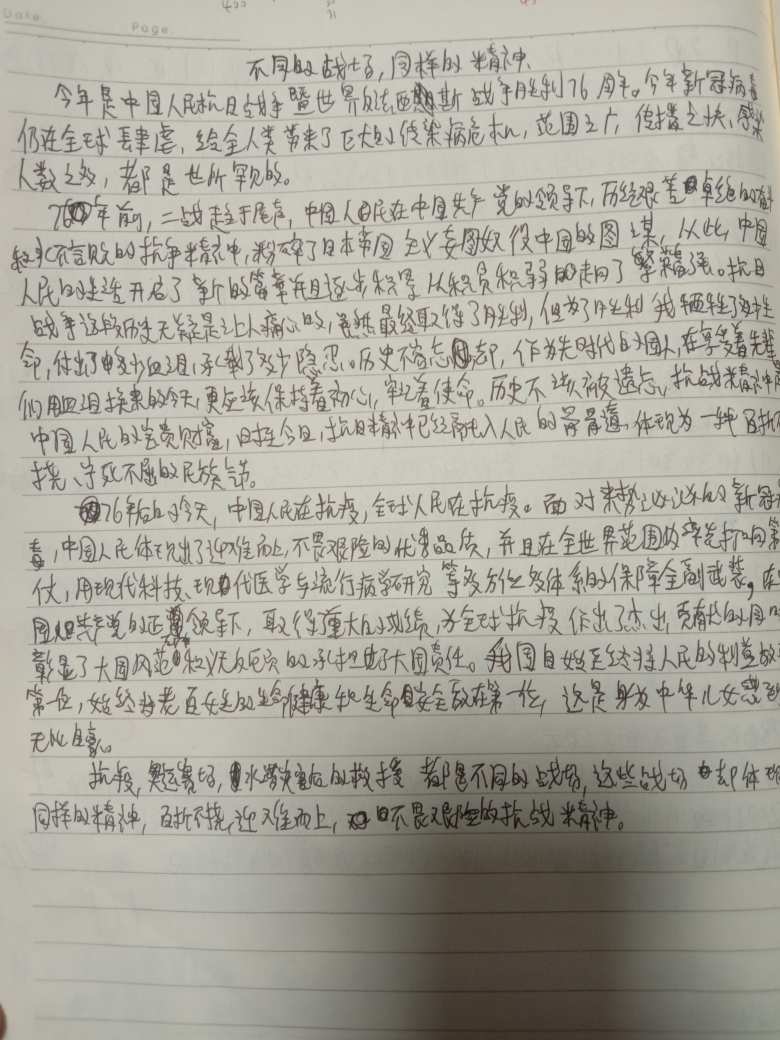 Date
Page
不同的战场,同样的精神
今年是中国人民抗日战争暨世界反法西斯战争胜利76周年。今年新冠病毒
仍在全球肆虐,给全人类带来了巨大的传染病危机,范围之广,传播之快,感染
人数之多,都是世所罕见的。
76年前,二战趋于尾声,中国人民在中国共产党的领导下,历经艰苦卓绝的
永不言败的抗争精神,粉碎了日本帝国主义妄图奴役中国的图谋,从此,中国
人民的生活开启了新的篇章并且逐步积累从积贫积弱的走向了繁荣富强。抗日
战争这段历史无疑是让人痛心的,虽然最终取得了胜利,但为了胜利我牺牲了多少生
命,付出了多少血泪,承载了多少隐忍。历史不容忘却,作为先时代的国人,在享受着先辈
们用血泪换来的今天,更应该保持着初心,牢记着使命。历史不该被遗忘,抗战精神是
中国人民的宝贵财富,时至今日,抗日精神已经融入人民的骨骨道,体现为一种百折不
挠、宁死不屈的民族气节。
76年后的今天,中国人民在抗疫,全球人民在抗疫。面对来势汹汹的新冠病
毒,中国人民体现出了迎难而上,不畏艰险的优秀品质,并且在全世界范围的率先打响第
仗,用现代科技、现代医学与流行病学研究等多方位多体系的保障全副武装,在
国共产党的正确领导下,取得重大的成绩,为全球抗疫作出了杰出,贡献的同时
彰显了大国风范和义无反顾的承担起了大国责任。我国自始至终将人民的利益放
第一位,始终将老百姓的生命健康和生命安全放在第一位,这是身为中华儿女感到
无比自豪。
抗疫,奥运赛场,水灾后的救援都是不同的战场,这些战场却体现
同样的精神,百折不挠,迎难而上,不畏艰险的抗战精神。